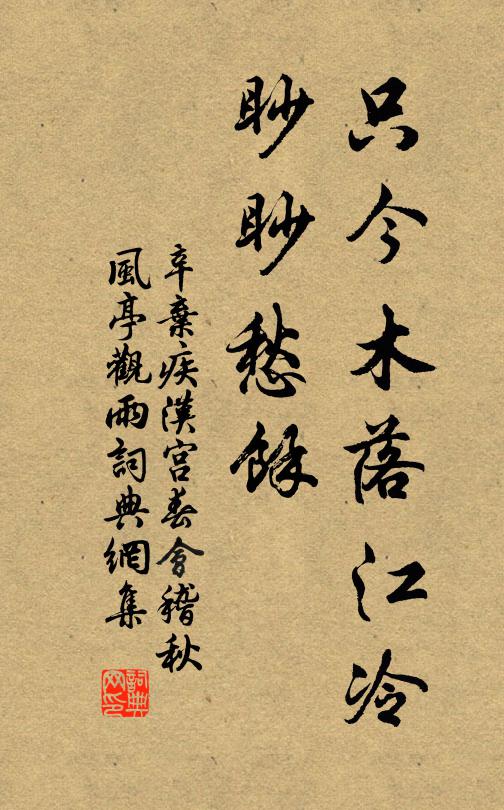 只今木落江冷
眇眇愁餘
辛棄疾漢宮春會稽秋
風亭觀雨詞典網集
詞典網印